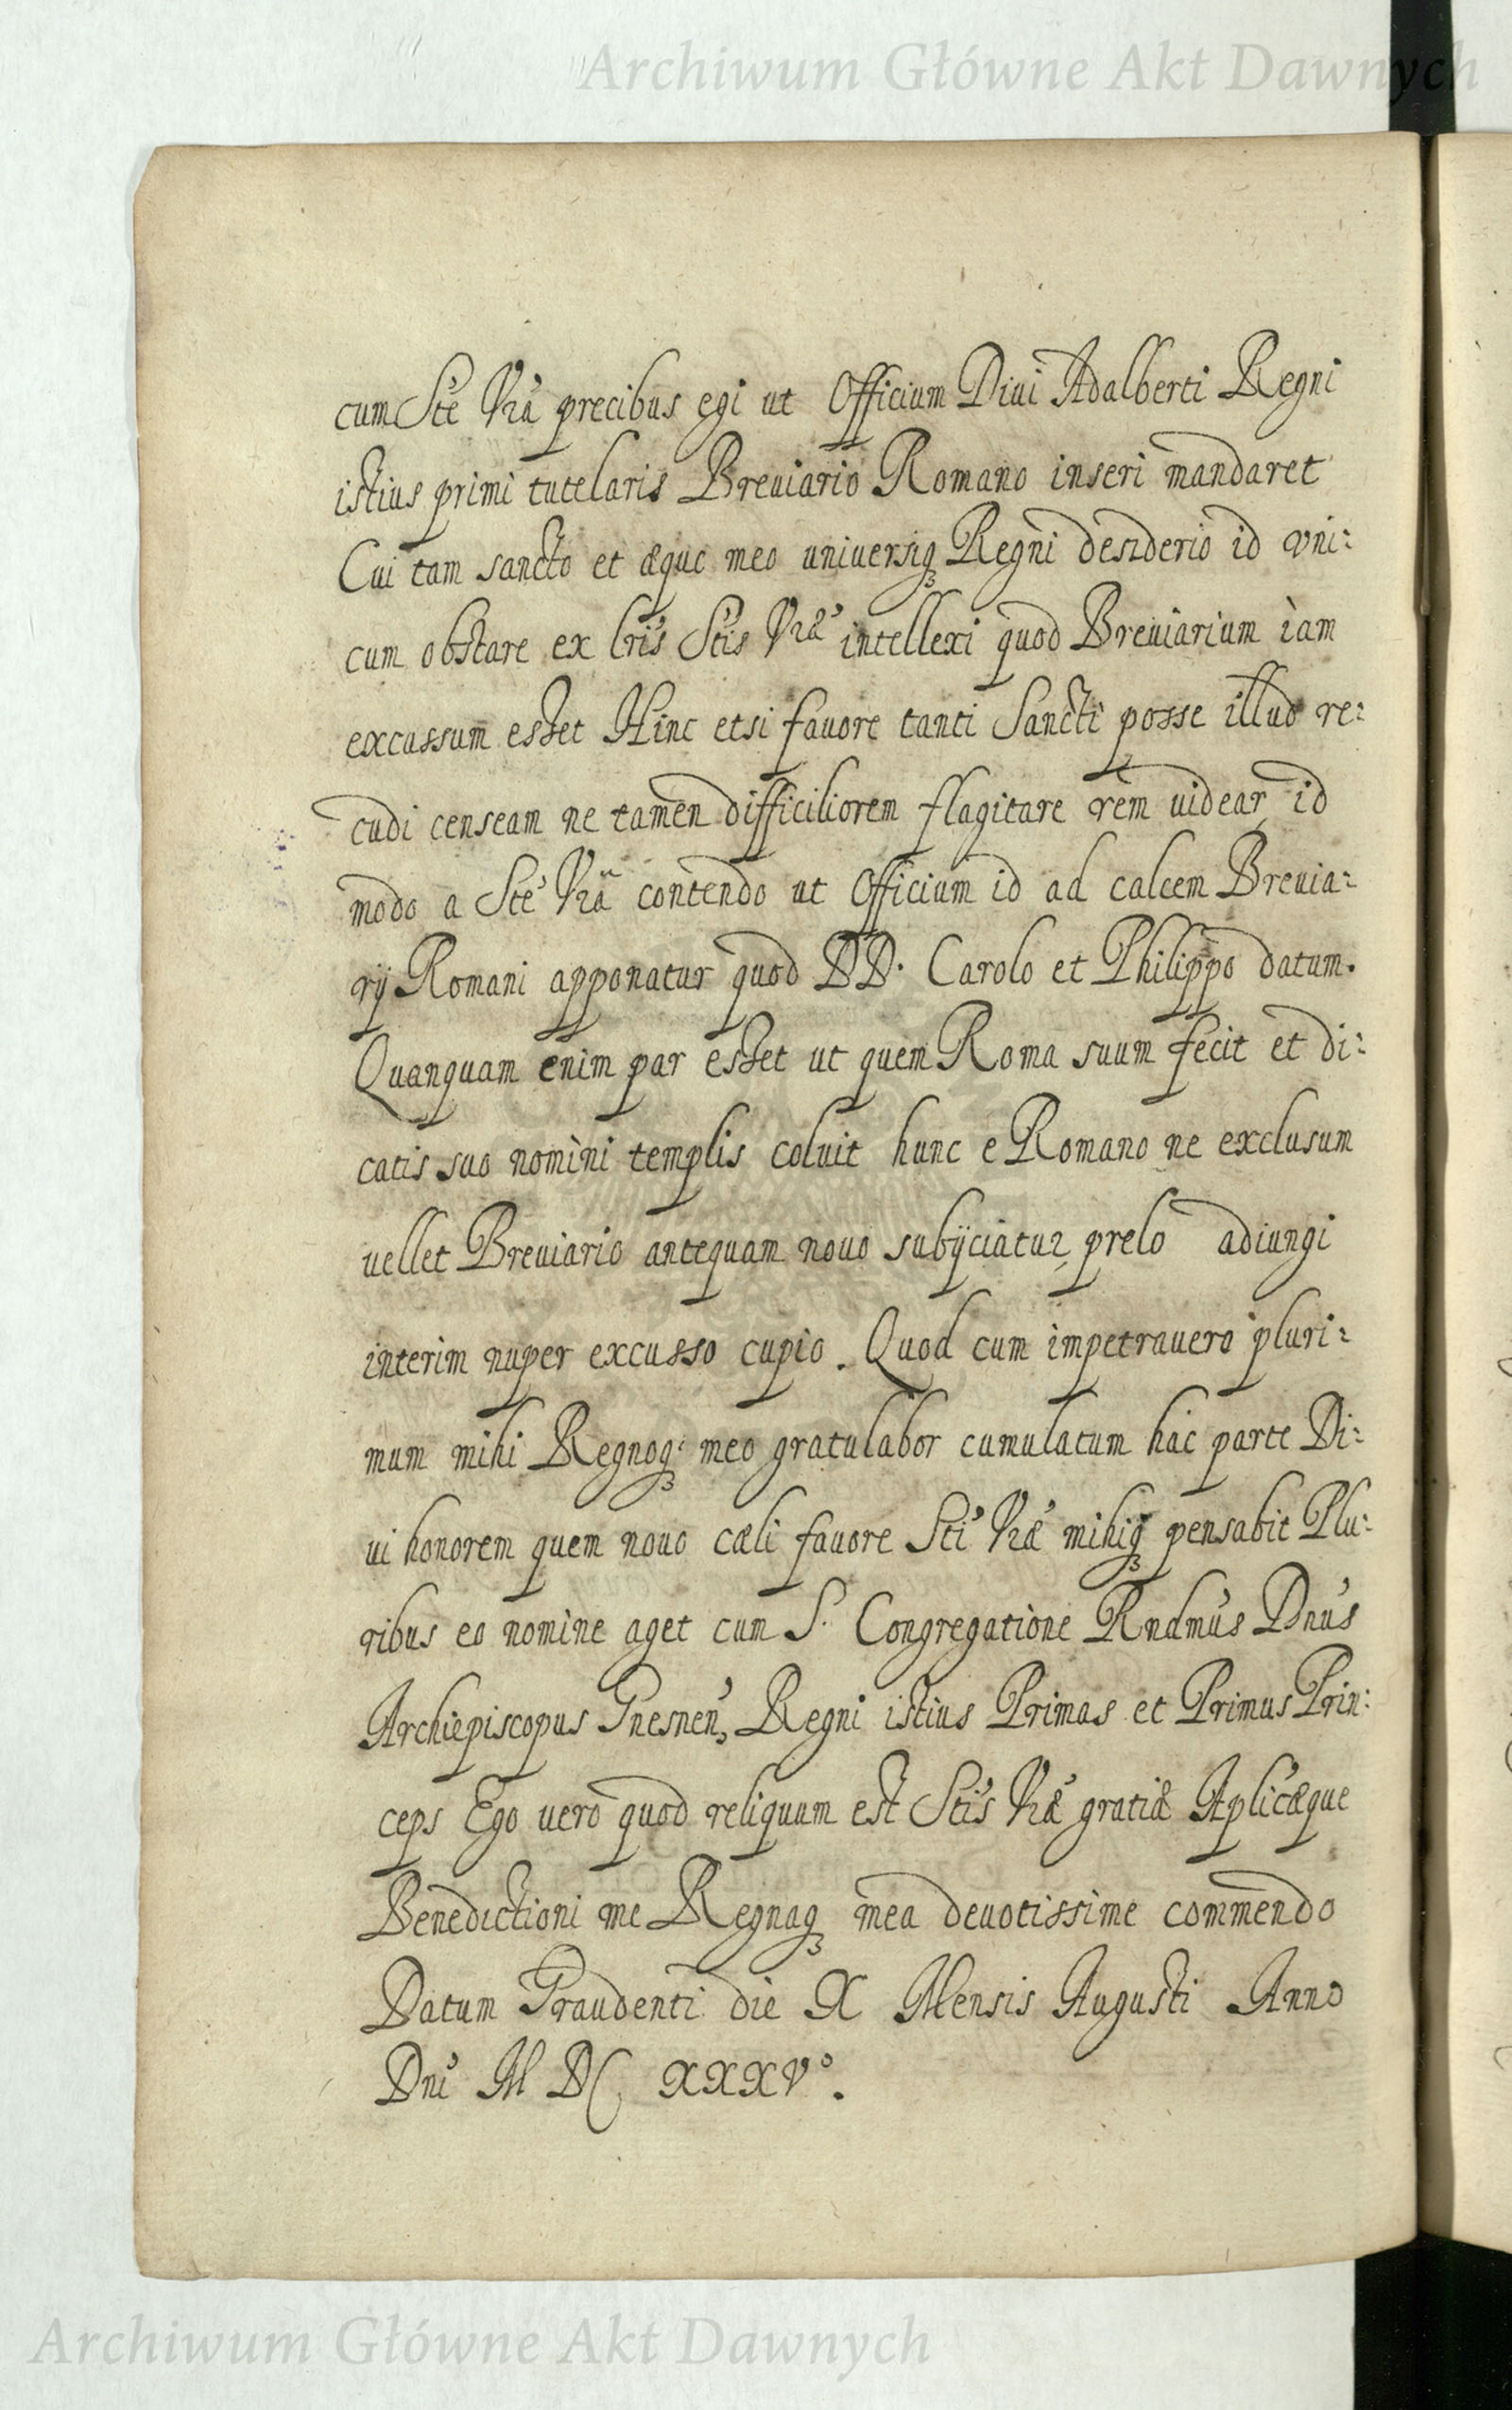 Archiwum Główne Akt Dawnych
cum Stẽ Vrã precibus egi ut Officium Diui Adalberti Regni
istius primi tutelaris Breuiario Romano inseri mandaret
Cui tam sancto et æque meo uniuersiq; Regni desiderio id vni:
cum obstare ex lrĩs Stĩs Vræ intellexi quod Breuiarium iam
excussum esset Hinc etsi fauore tanti Sancti posse illud re:
cudi censeam ne tamen difficiliorem flagitare rem uidear, id
modo a Stẽ Vrã contendo ut Officium id ad calcem Breuia:
rij Romani apponatur quod DD. Carolo et Philippo datum.
Quanquam enim par esset ut quem Roma suum fecit et di:
catis suo nomini templis coluit hunc e Romano ne exclusum
uellet Breuiario antequam nouo subijciatur prelo adiungi
interim nuper excusso cupio. Quod cum impetrauero pluri:
mum mihi Regnoq; meo gratulabor cumulatum hac parte Di:
ui honorem quem nouo cæli fauore Stĩ Vræ mihiq; pensabit Plu:
ribus eo nomine aget cum S. Congregatione Rndmũs Dnũs
Archiepiscopus Gnesnen̄, Regni istius Primas et Primus Prin:
ceps Ego uero quod reliquum est Stĩs Vræ gratiæ Aplicæque
Benedictioni me Regnaq; mea deuotissime commendo
Datum Graudenti die X Mensis Augusti Anno
Dnĩ M DC XXXVº.
Archiwum Główne Akt Dawnych